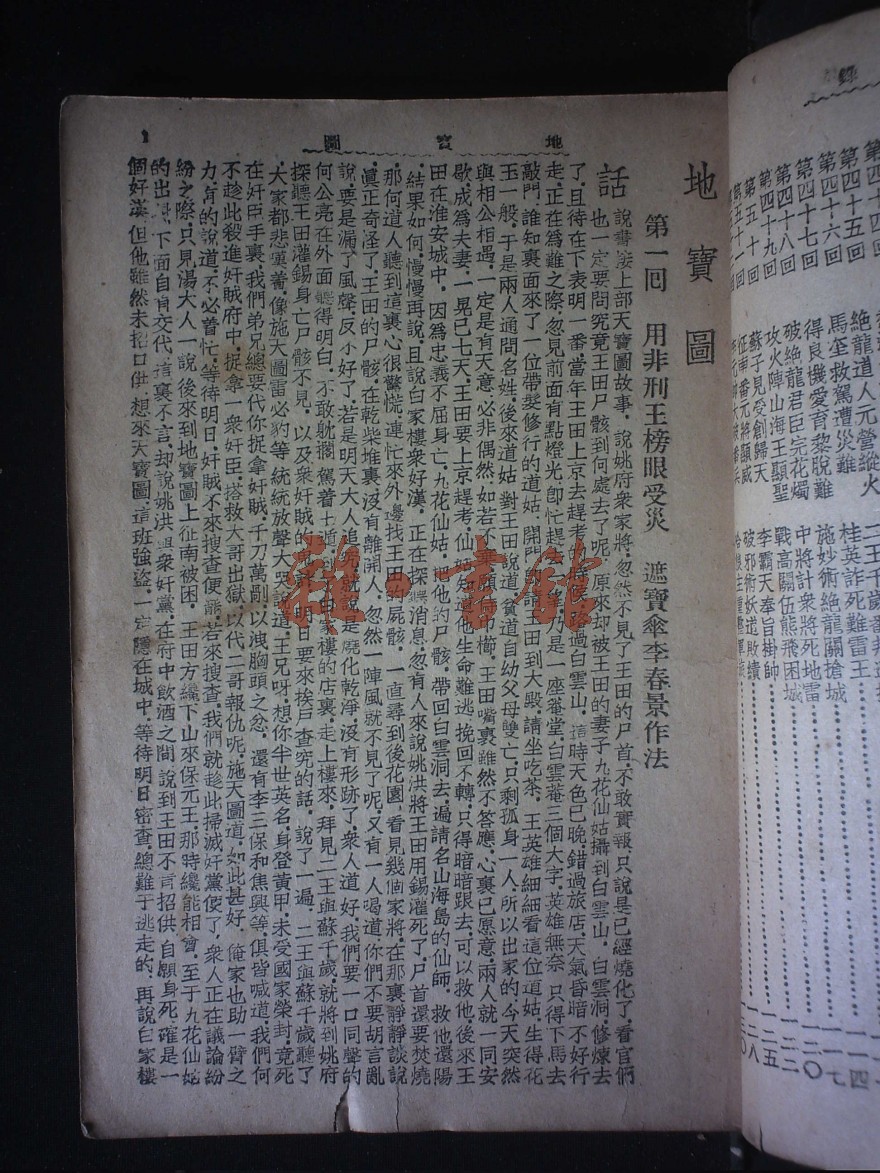 錄
第四十五回
第四十六回
第四十七回
第四十八回
第四十九回
第五十回
絶龍道人元營縱火
馬筌救駕遭災難
得良機愛育黎脫難
破絶龍君臣完花燭
攻火陣山海王顯聖
蘇子見受創歸天
征南番元將顯威
桂英詐死難雷王
施妙術絶龍關搶城
中將計衆將死地雷
戰高關伍熊飛困城
李霸天奉旨掛帥
破邪術妖道敗績
地寶圖
1
地寶圖
第一囘 用非刑王榜眼受災 遮寶傘李春景作法
話說書接上部天寶圖故事．說姚府衆家將．忽然不見了王田的尸首．不敢實報．只說是已經燒化了．看官們
也一定要問究竟王田尸骸到何處去了呢．原來却被王田的妻子九花仙姑攝到白雲山．白雲洞修煉去
了．且待在下表明一番．當年王田上京去趕考的時候．路過白雲山．這時天色已晚．錯過旅店．天氣昏暗．不好行
走．正在爲難之際．忽見前面有點燈光．卽忙趕．乃是一座菴堂．白雲菴三個大字．英雄無奈．只得下馬去
敲門．誰知裏面來了一位帶髮修行的道姑．開門．請王田到大殿．請坐吃茶．王英雄細細看這位道姑．生得花
玉一般．于是兩人通問名姓．後來道姑對王田說道．貧道自幼父母雙亡．只剩孤身一人．所以出家的．今天突然
與相公相遇．一定是有天意．必非偶然．如若不棄．願侍巾櫛．王田嘴裏雖然不答應．心裏已愿意．兩人就一同安
歇．成爲夫妻．一晃已七天．王田要上京趕考．仙姑知道他生命難逃．挽回不轉．只得暗暗跟去．可以救他．後來王
田在淮安城中．因爲忠義不屈身亡．九花仙姑把他的尸骸．帶回白雲洞去．遍請名山海島的仙師．救他還陽
．結果如何．慢慢再說．且說白家樓衆好漢．正在探聽消息．忽有人來說姚洪將王田用錫灌死了．尸首還要焚燒
．那何道人聽到這裏．心很驚慌．連忙來外邊找王田的屍骸．一直尋到後花園．看見幾個家將．在那裏靜靜談說
．眞正奇怪了．王田的尸骸．在乾柴堆裏．沒有離開人．忽然一陣風就不見了呢．又有一人喝道．你們不要胡言亂
說．要是漏了風聲．反不好了．若是明天大人追究．就說是燒化乾淨．沒有形跡了．衆人道好．我們要一口同聲的
．何公亮在外面聽得明白．不敢躭擱．駕着土遁．到白家樓的店裏．走上樓來．拜見二王與蘇千歲．就將到姚府
探聽王田灌錫身亡．尸骸不見．以及衆奸賊的．明日要來挨戶查究的話．說了一遍．二王與蘇千歲聽了
．大家都悲傷着．像施大圖雷必豹等．統統放聲大哭．說道．王兄呀．想你半世英名．身登黃甲．未受國家榮封．竟死
在奸臣手裏．我們弟兄．總要代你捉拿奸賊．千刀萬剮．以洩胸頭之忿．還有李三保和焦興等．俱皆喊道．我們何
不趁此殺進奸賊府中．捉拿一衆奸臣．搭救大哥出獄．以代二哥報仇呢．施天圖道．如此甚好．俺家也助一臂之
力．有的說道．不必着忙．等待明日．奸賊不來搜查便罷．若來搜查．我們就趁此掃滅奸黨便了．衆人正在議論紛
紛之際．只見湯大人一說．後來到地寶圖上．征南被困．王田方纔下山來保元王．那時纔能相會．至于九花仙姑
的出．下面自有交代．這裏不言．却說姚洪與衆奸黨．在府中飲酒之間．說到王田不肯招供．自願身死．確是一
個好漢．但他雖然未招口供．想來天寶圖這班強盜．一定隱在城中．等待明日密查．總難于逃走的．再說白家樓
雜·書館